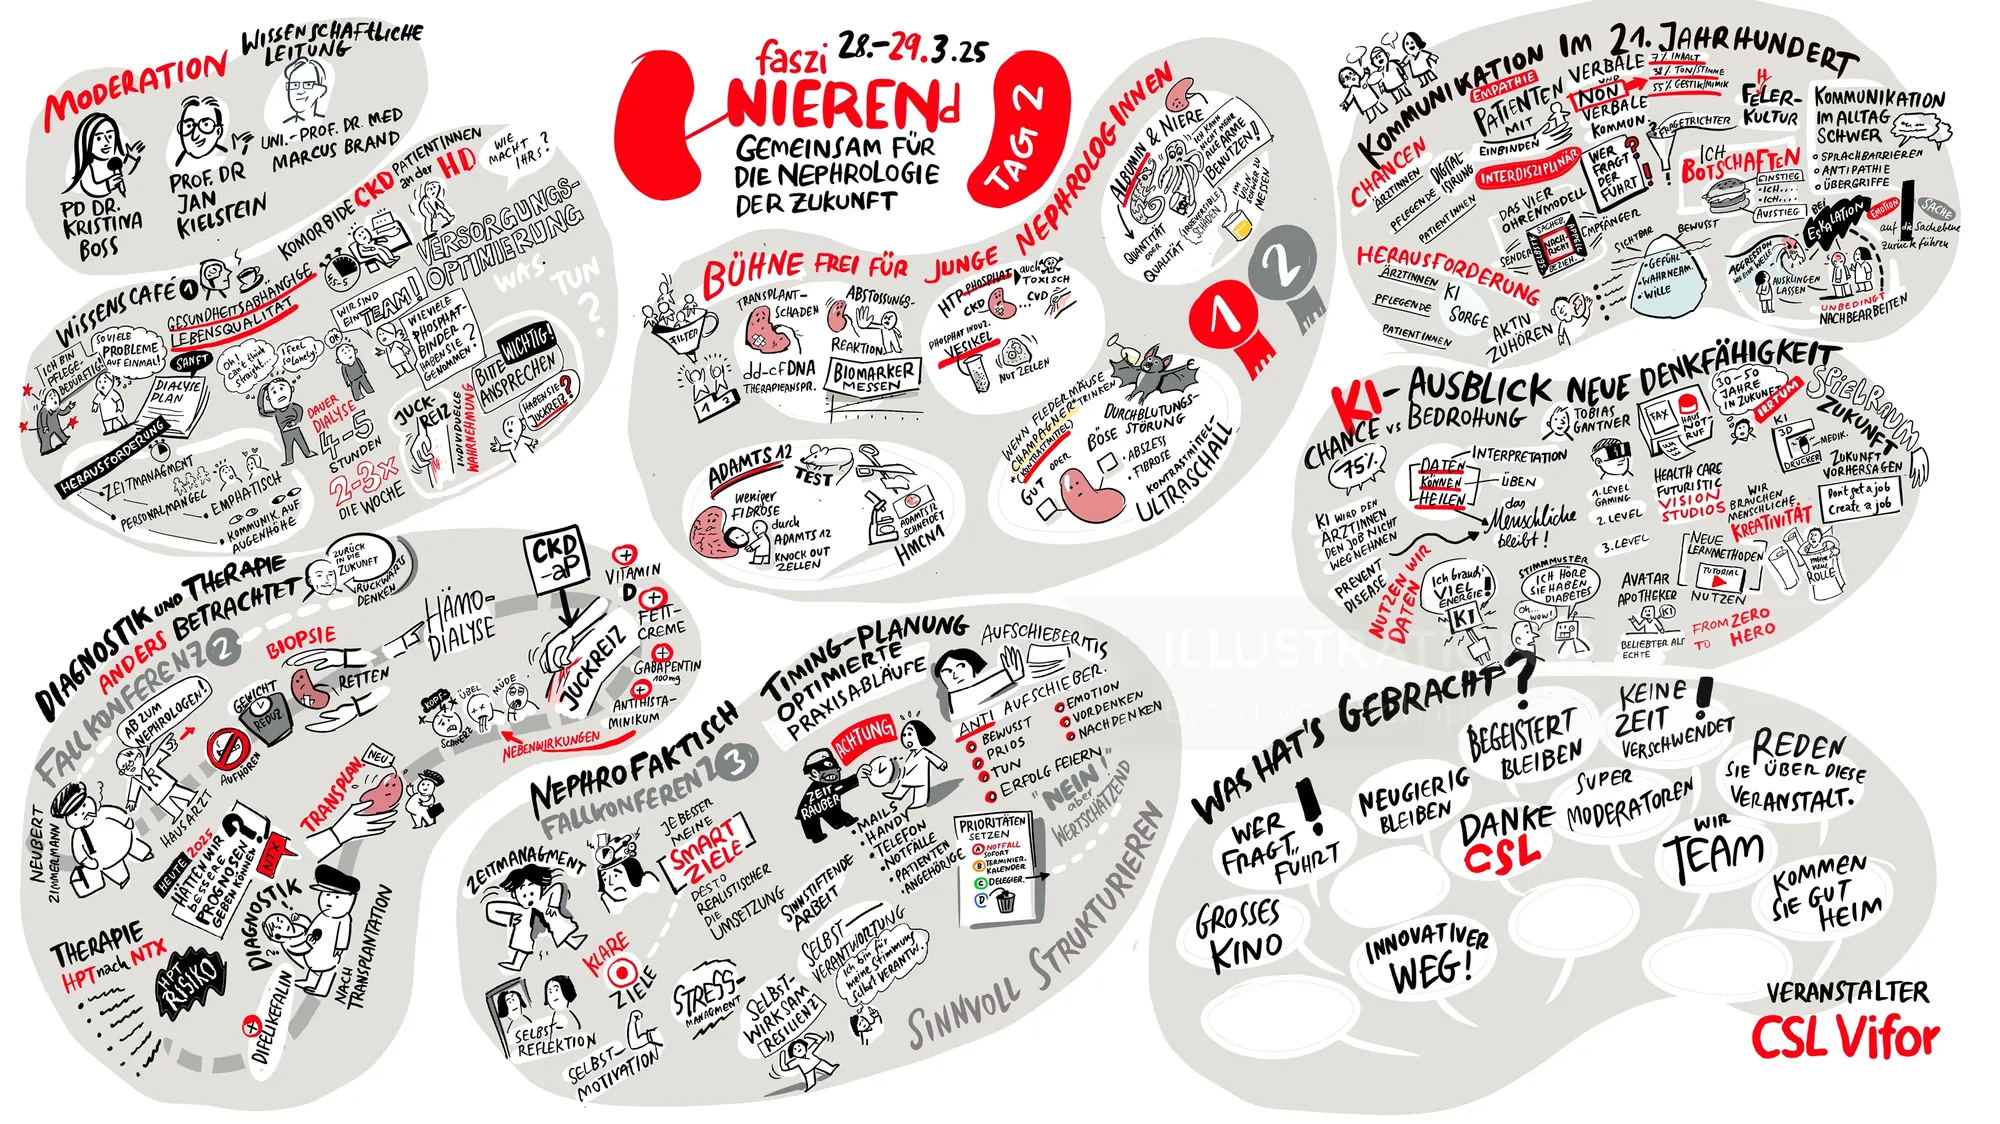 MODERATION
WISSENSCHAFTLICHE
LEITUNG
PD DR.
KRISTINA
BOSS
PROF. DR
JAN
KIELSTEIN
UNI.-PROF. DR. MED
MARCUS BRAND
faszi 28.-29.3.25
NIERENd
GEMEINSAM FÜR
DIE NEPHROLOGIE
DER ZUKUNFT
TAG 2
WISSENSCAFÉ 1
KOMORBIDE CKD PATIENTINNEN
an der HD
WIE
MACHT
IHR'S?
VERSORGUNGS-
OPTIMIERUNG
WAS
TUN
?
GESUNDHEITSABHÄNGIGE
LEBENSQUALITÄT
SANFT
ICH BIN
PFLEGE-
BEDÜRFTIG!
SO VIELE
PROBLEME
AUF EINMAL!
DIALYSE
PLAN
Oh, I
can't think
straight...
I feel
lonely!
OK!
WIR SIND
EIN TEAM!
WIEVIELE
PHOSPHAT-
BINDER
HABEN SIE
GENOMMEN?
BITTE WICHTIG!
ANSPRECHEN
HABEN SIE
JUCKREIZ?
JUCK-
REIZ
INDIVIDUELLE
WAHRNEHMUNG
DAUER
DIALYSE
4-5
STUNDEN
2-3x
DIE WOCHE
HERAUSFORDERUNG
• ZEITMANAGMENT
• PERSONALMANGEL
• EMPHATISCH
• KOMMUNIK. AUF
AUGENHÖHE
BÜHNE FREI FÜR JUNGE NEPHROLOGINNEN
FILTER
1 2
TRANSPLANT-
SCHADEN
dd-cfDNA
THERAPIENSPR.
ABSTOSSUNGS-
REAKTION
BIOMARKER
MESSEN
HTP PHOSPHAT auch
TOXISCH
CKD
CVD
PHOSPHAT INDUZ.
VESIKEL
NUT ZELLEN
ALBUMIN & NIERE
ICH KANN
NICHT MEHR
ALLE ARME
BENUTZEN!
QUANTITÄT
ODER
QUALITÄT
(IRREVERSIBLE
SCHÄDEN)
URIN
SCHWER ZU
MESSEN
1
2
ADAMTS 12
TEST
WENIGER
FIBROSE
durch
ADAMTS 12
KNOCK OUT
ZELLEN
ADAMTS 12
SCHNEIDET
HMCN1
WENN FLEDERMÄUSE
CHAMPAGNER* TRINKEN
*KONTRASTMITTEL)
GUT
ODER
BÖSE
DURCHBLUTUNGS-
STÖRUNG
• ABSZESS
• FIBROSE
KONTRASTMITTEL-
ULTRASCHALL
KOMMUNIKATION IM 21. JAHRHUNDERT
CHANCEN
ÄRZTINNEN
PFLEGENDE
PATIENTINNEN
DIGITAL-
ISIERUNG
EMPATHIE
PATIENTEN
MIT
EINBINDEN
INTERDISZIPLINÄR
VERBALE
UND
NON
VERBALE
KOMMUN.
7% INHALT
38% TON/STIMME
55% GESTIK/MIMIK
FEHLER-
KULTUR
KOMMUNIKATION
IM ALLTAG
SCHWER
• SPRACHBARRIEREN
• ANTIPATHIE
• ÜBERGRIFFE
FRAGETRICHTER
WER
FRAGT
DER
FÜHRT
?!
ICH
BOTSCHAFTEN
EINSTIEG
• ICH...
• ICH...
AUSSTIEG
DAS VIER
OHRENMODELL
SENDER
EMPFÄNGER
SACHEB.
NACH-
RICHT
APPELL
BEZIEH.
HERAUSFORDERUNG
ÄRZTINNEN
PFLEGENDE
PATIENTINNEN
KI
SORGE
AKTIV
ZUHÖREN
SICHTBAR
BEWUSST
• GEFÜHL
• WAHRNEHM.
• WILLE
BEI
ESKALATION
EMOTION
SACHE
auf die Sachebene
zurück führen
AGGRESSION
WIE EINE WELLE
AUSKLINGEN
LASSEN
UNBEDINGT
NACHBEARBEITEN
KI-AUSBLICK NEUE DENKFÄHIGKEIT
CHANCE vs BEDROHUNG
75%
TOBIAS
GANTNER
FAX
HAUS
NOT
RUF
30-50
JAHRE
IN ZUKUNFT
IRRTUM
SPIELRAUM
ZUKUNFT
KI
3D
DRUCKER
MEDIK.
ZUKUNFT
VORHERSAGEN
Don't get a job
Create a job
DATEN
KÖNNEN
HEILEN
INTERPRETATION
ÜBEN
das
Menschliche
bleibt!
1. LEVEL
GAMING
2. LEVEL
3. LEVEL
HEALTH CARE
FUTURISTIC
VISION
STUDIOS
WIR
BRAUCHEN
MENSCHLICHE
KREATIVITÄT
KI WIRD DEN
ÄRZTINNEN
DEN JOB NICHT
WEGNEHMEN
PREVENT
DISEASE
NUTZEN WIR
DATEN
Ich brauch
VIEL
ENERGIE!
KI
STIMMMUSTER
ICH HÖRE
SIE HABEN
DIABETES
OH..
WOW!
AVATAR
APOTHEKER
KI
BELIEBTER ALS
ECHTE
NEUE
LERNMETHODEN
TUTORIAL
NUTZEN
meine
neue
ROLLE
FROM ZERO
TO HERO
DIAGNOSTIK UND THERAPIE
ANDERS BETRACHTET
FALLKONFERENZ 2
ZURÜCK
IN DIE
ZUKUNFT
RÜCKWÄRTS
DENKEN
HÄMO-
DIALYSE
BIOPSIE
RETTEN
AB ZUM
NEPHROLOGEN!
HAUSARZT
GEWICHT
REDUZ
AUFHÖREN
NEUBERT
ZIMMERMANN
TRANSPLAN
NEU
HEUTE 2025
HÄTTEN WIR
BESSERE
PROGNOSEN
GEBEN KÖNNEN
?
NTX
DIAGNOSTIK
THERAPIE
HPT nach NTX
HPT
RISIKO
DIFELIKEFALIN
NACH
TRANSPLANTATION
CKD
-aP
JUCKREIZ
VITAMIN
D
FETT-
CREME
GABAPENTIN
100mg
ANTIHISTA-
MINIKUM
NEBENWIRKUNGEN
KOPF-
SCHMERZ
ÜBEL
MÜDE
NEPHROFAKTISCH
FALLKONFERENZ 3
TIMING-PLANUNG
OPTIMIERTE
PRAXISABLÄUFE
AUFSCHIEBERITIS
ANTI AUFSCHIEBER.
BEWUSST
PRIOS
TUN
ERFOLG FEIERN
EMOTION
VORDENKEN
NACHDENKEN
"NEIN"
aber
WERTSCHÄTZEND
ACHTUNG
ZEIT-
RÄUBER
• MAILS
• HANDY
• TELEFON
• NOTFÄLLE
• PATIENTEN
• ANGEHÖRIGE
PRIORITÄTEN
SETZEN
A NOTFALL
SOFORT
B TERMINIER.
KALENDER
C DELEGIER.
D
ZEITMANAGMENT
JE BESSER
MEINE
SMART
ZIELE
DESTO
REALISTISCHER
DIE
UMSETZUNG
KLARE
ZIELE
SINNSTIFTENDE
ARBEIT
SELBST-
REFLEKTION
SELBST-
MOTIVATION
STRESS-
MANAGMENT
SELBST-
WIRKSAM
RESILIENZ
SELBST-
VERANTWORTUNG
Ich bin für
meine Stimmung
selbst VERANTW.
SINNVOLL STRUKTURIEREN
WAS HAT'S GEBRACHT?
WER
FRAGT,,
FÜHRT
!
NEUGIERIG
BLEIBEN
BEGEISTERT
BLEIBEN
KEINE
ZEIT !
VERSCHWENDET
REDEN
SIE ÜBER DIESE
VERANSTALT.
DANKE
CSL
SUPER
MODERATOREN
WIR
TEAM
KOMMEN
SIE GUT
HEIM
GROSSES
KINO
INNOVATIVER
WEG!
VERANSTALTER
CSL Vifor